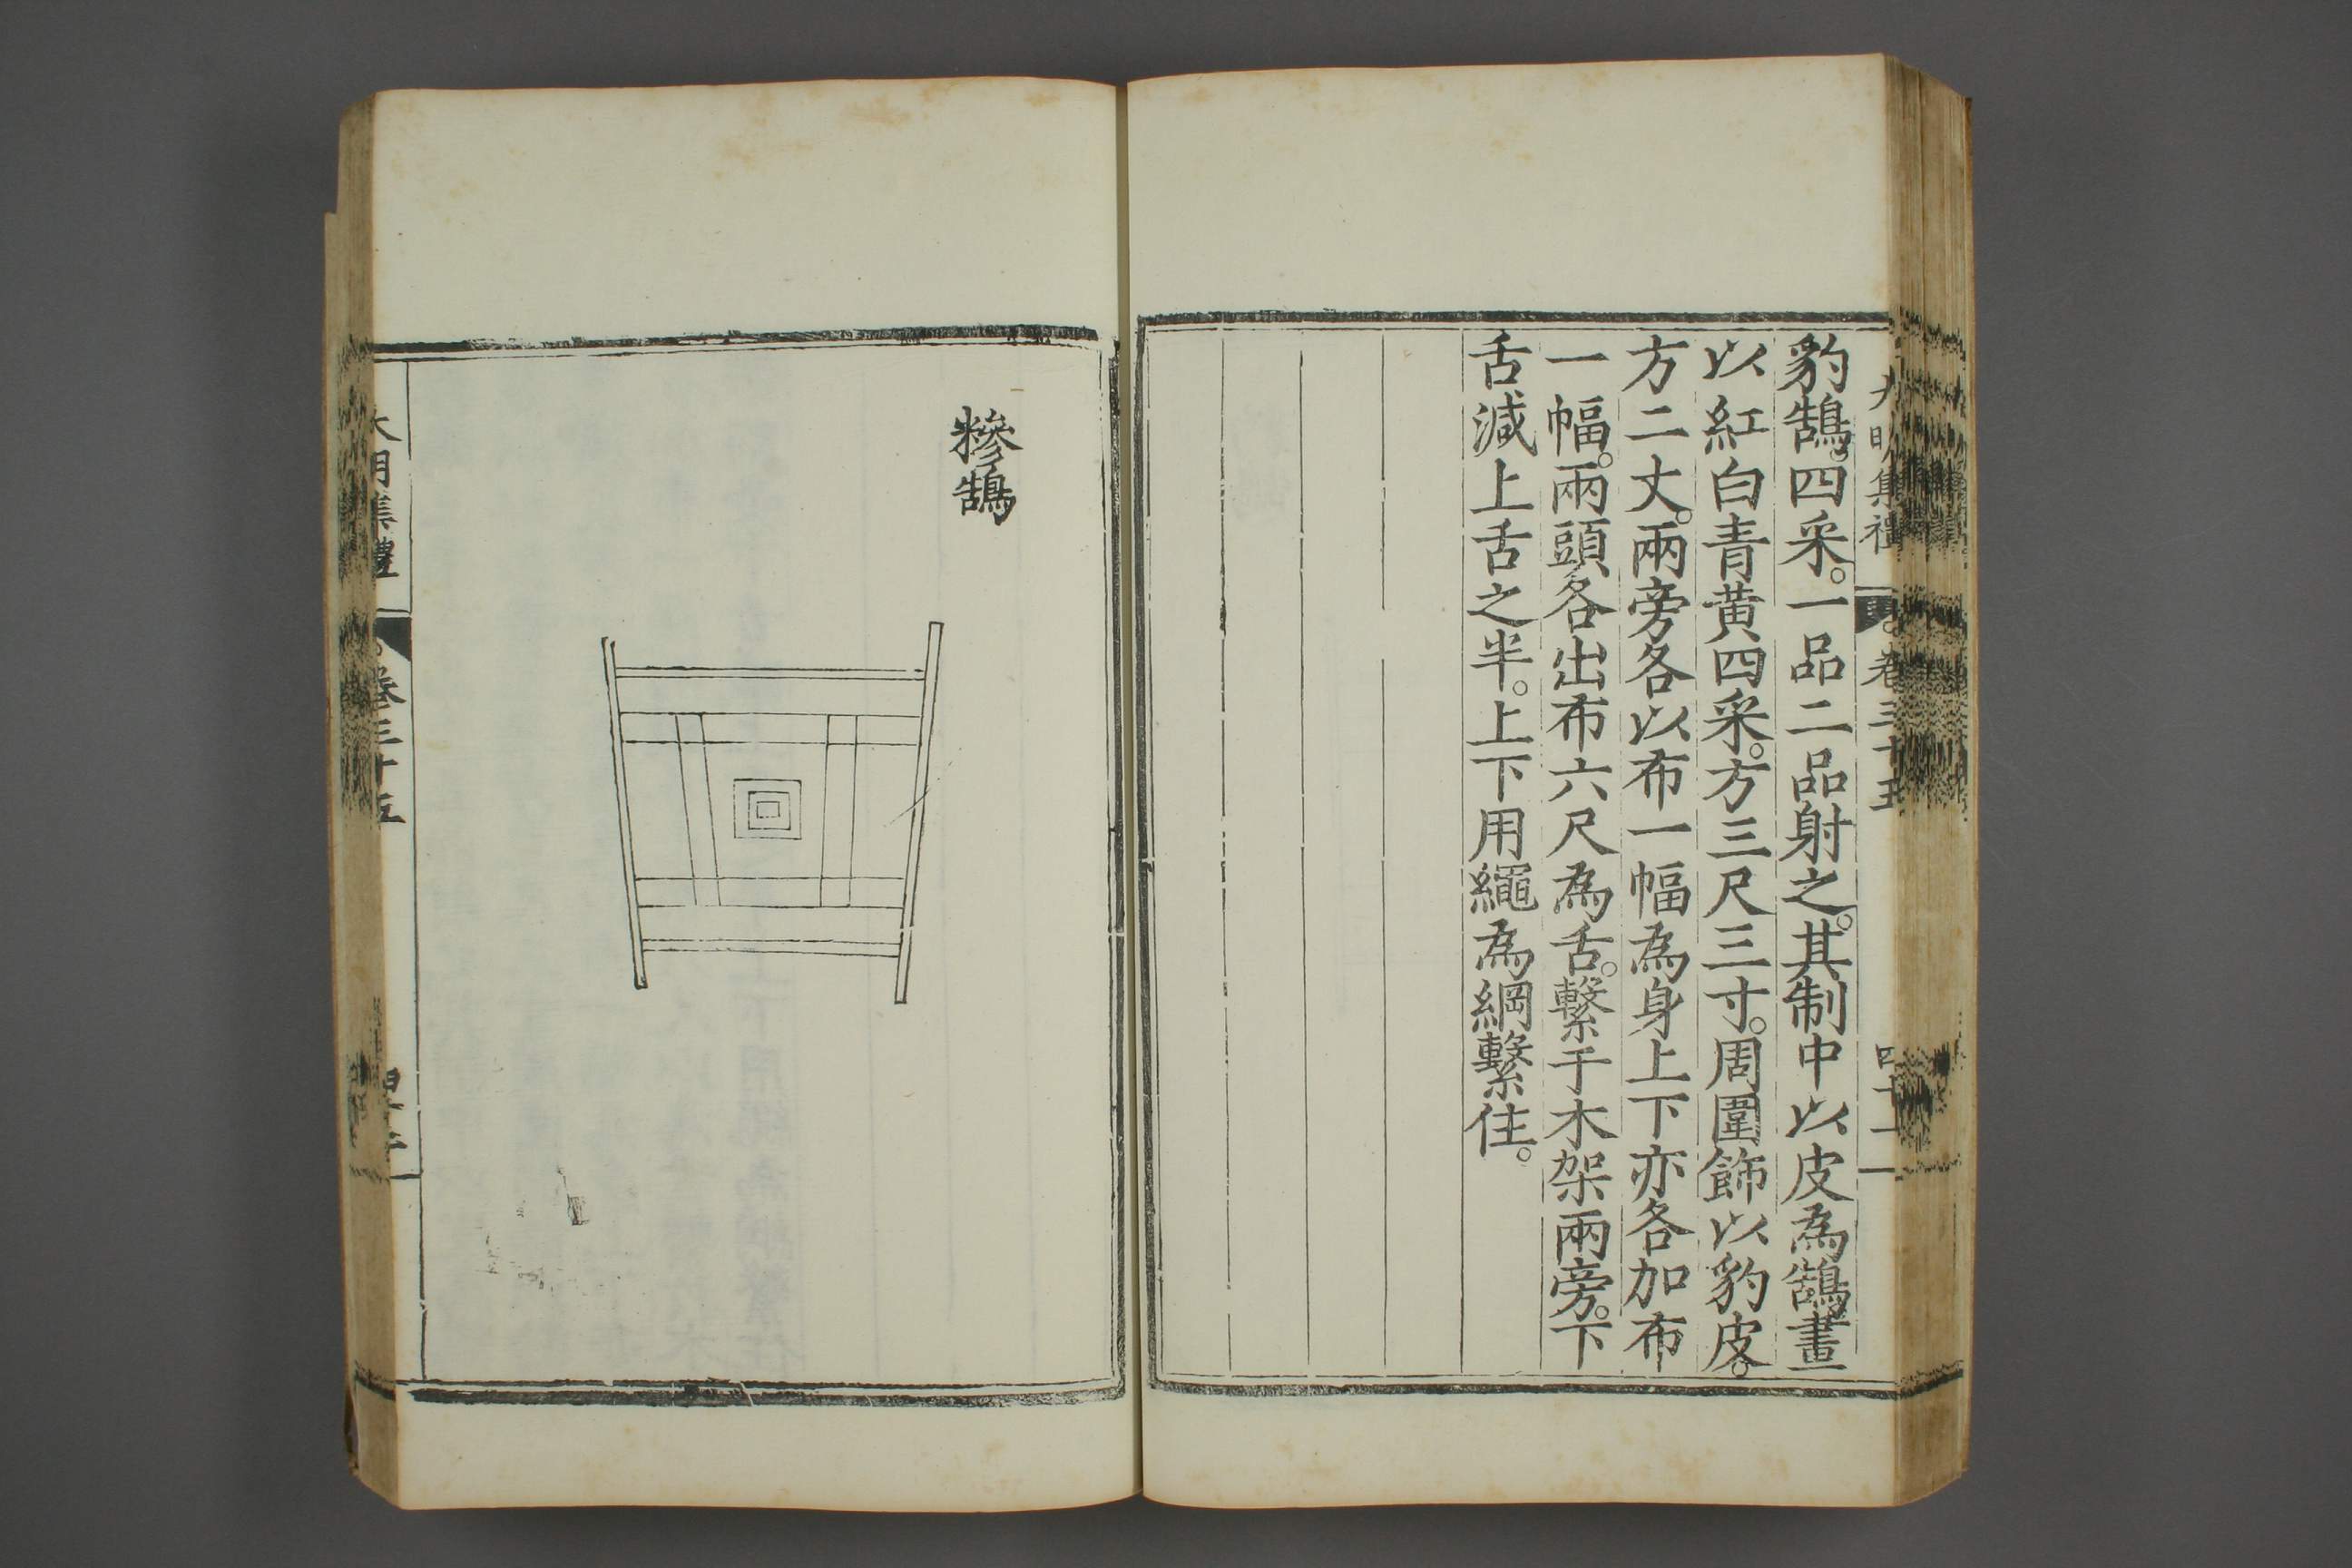 大明集禮 卷三十五 四十一
豹鵠。四采。一品二品射之。其制中以皮為鵠畫
以紅白青黃四采。方三尺三寸。周圍飾以豹皮。
方二丈。兩旁各以布一幅為身上下亦各加布
一幅。兩頭各出布六尺為舌。繫于木架兩旁。下
舌減上舌之半。上下用繩為綱繫住。
糝鵠
大明集禮 卷三十五